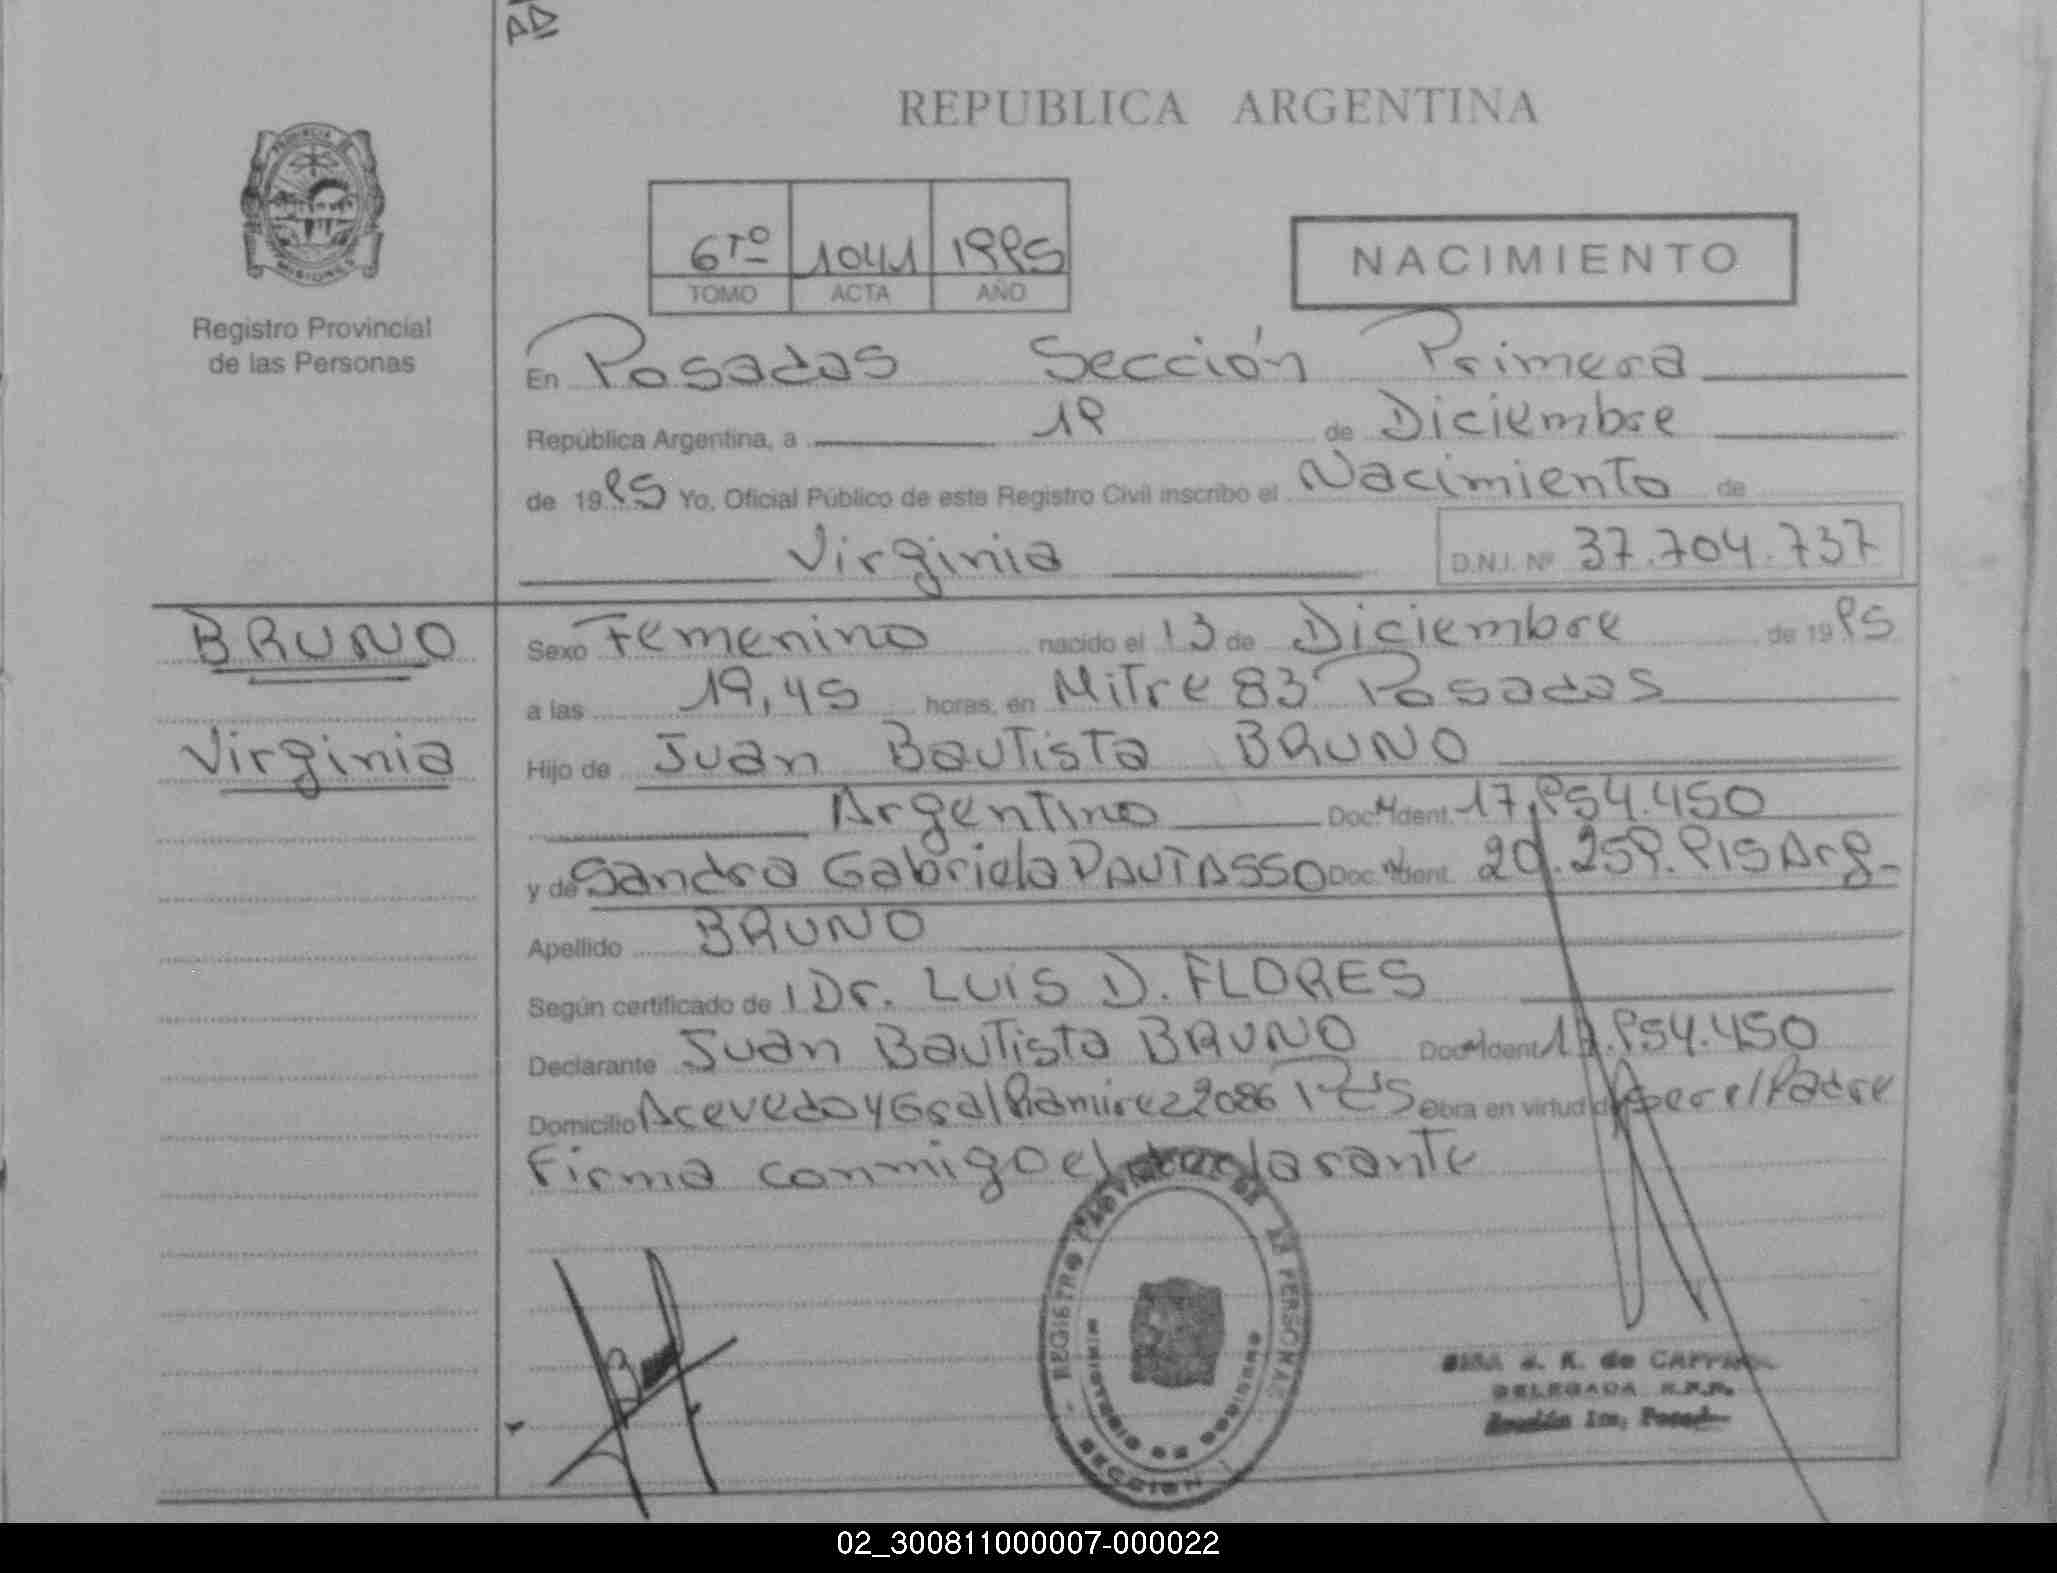 AD
REPUBLICA ARGENTINA
PROVINCIA
MISIONES
Registro Provincial
de las Personas
6TO 1041 1995
TOMO ACTA AÑO
NACIMIENTO
En Posadas Sección Primera
República Argentina, a 19 de Diciembre
de 1995 Yo, Oficial Público de este Registro Civil inscribo el Nacimiento de
Virginia D.N.I. Nº 37.704.737
BRUNO
Virginia
Sexo Femenino nacido el 13 de Diciembre de 1995
a las 19,45 horas, en Mitre 83 Posadas
Hijo de Juan Bautista BRUNO
Argentino Doc. Ident. 17.954.450
y de Sandra Gabriela PAUTASSO Doc. Ident. 20.259.915 Arg-
Apellido BRUNO
Según certificado de Dr. LUIS D. FLORES
Declarante Juan Bautista BRUNO Doc. Ident 17.954.450
Domicilio Acevedo y Gral Ramirez 2086 Obra en virtud de ser el Padre
Firma conmigo el declarante
REGISTRO PROVINCIAL DE LAS PERSONAS
MINISTERIO DE GOBIERNO
SECCION
DELEGADA R.P.P.
Sección 1ra. Posadas
02_300811000007-000022